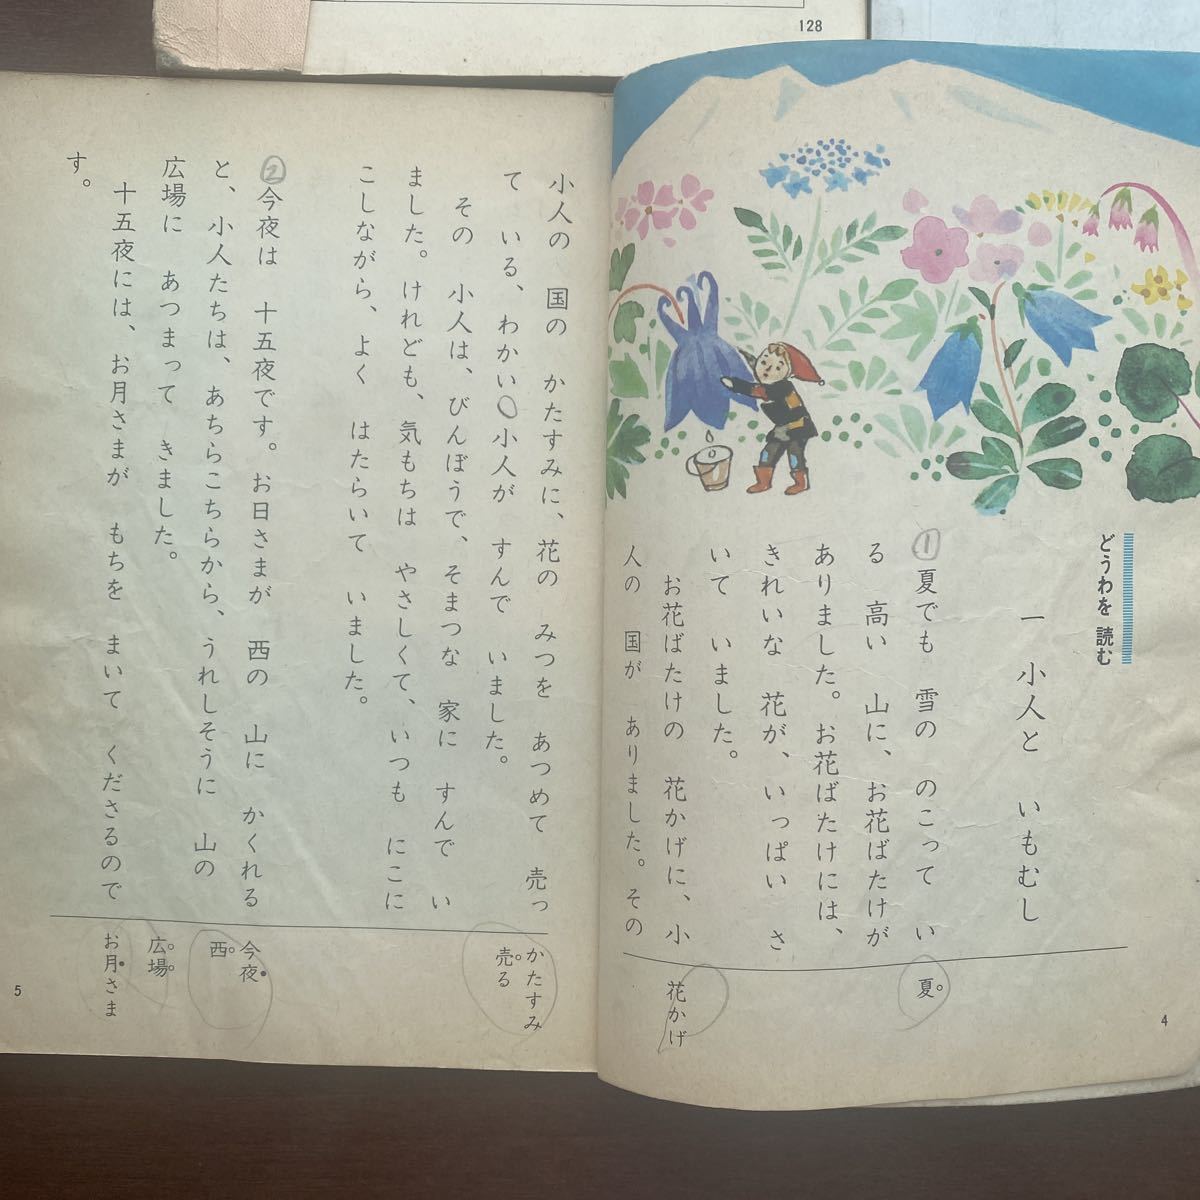 128
どうわを 読む
一 小人と いもむし
①夏でも 雪の のこって い
る 高い 山に、お花ばたけが
ありました。お花ばたけには、
きれいな 花が、いっぱい さ
いて いました。
お花ばたけの 花かげに、小
人の 国が ありました。その
夏
花かげ
4
小人の 国の かたすみに、花の みつを あつめて 売っ
て いる、わかい 小人が すんで いました。
その 小人は、びんぼうで、そまつな 家に すんで い
ました。けれども、気もちは やさしくて、いつも にこに
こしながら、よく はたらいて いました。
②今夜は 十五夜です。お日さまが 西の 山に かくれる
と、小人たちは、あちらこちらから、うれしそうに 山の
広場に あつまって きました。
十五夜には、お月さまが もちを まいて くださるので
す。
かたすみ
売る
今夜
西
広場
お月さま
5